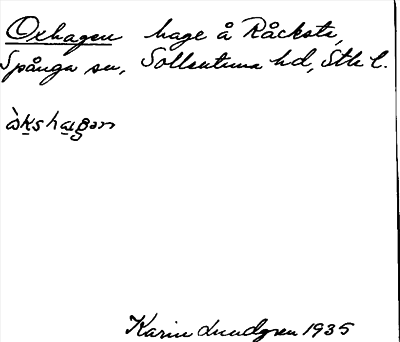 Oxhagen hage å Råcksta,
Spånga sn, Sollentuna hd, Sth l.
Karin Lundgren 1935